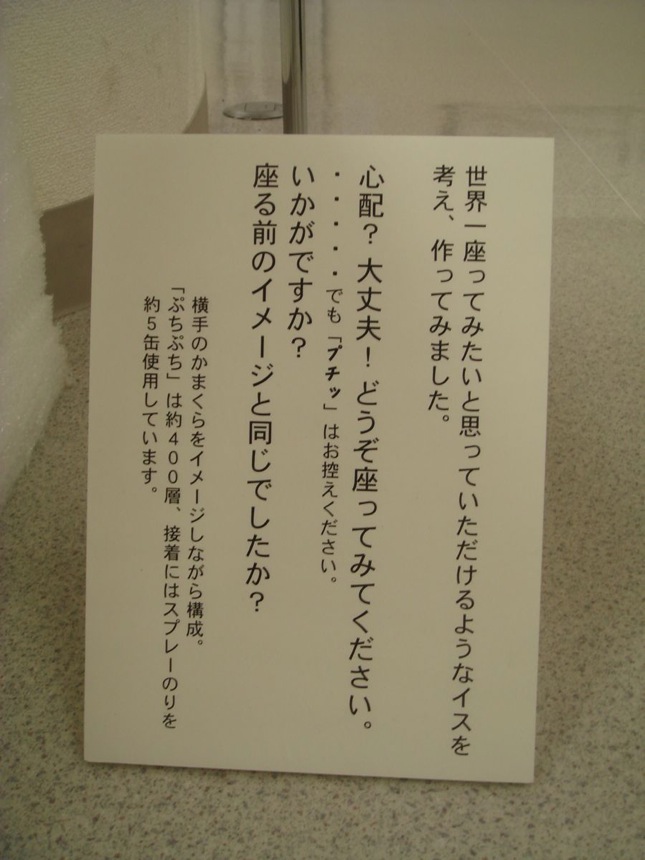 世界一座ってみたいと思っていただけるようなイスを
考え、作ってみました。
心配？大丈夫！どうぞ座ってみてください。
・・・・・でも「プチッ」はお控えください。
いかがですか？
座る前のイメージと同じでしたか？
横手のかまくらをイメージしながら構成。
「ぷちぷち」は約４００層、接着にはスプレーのりを
約５缶使用しています。